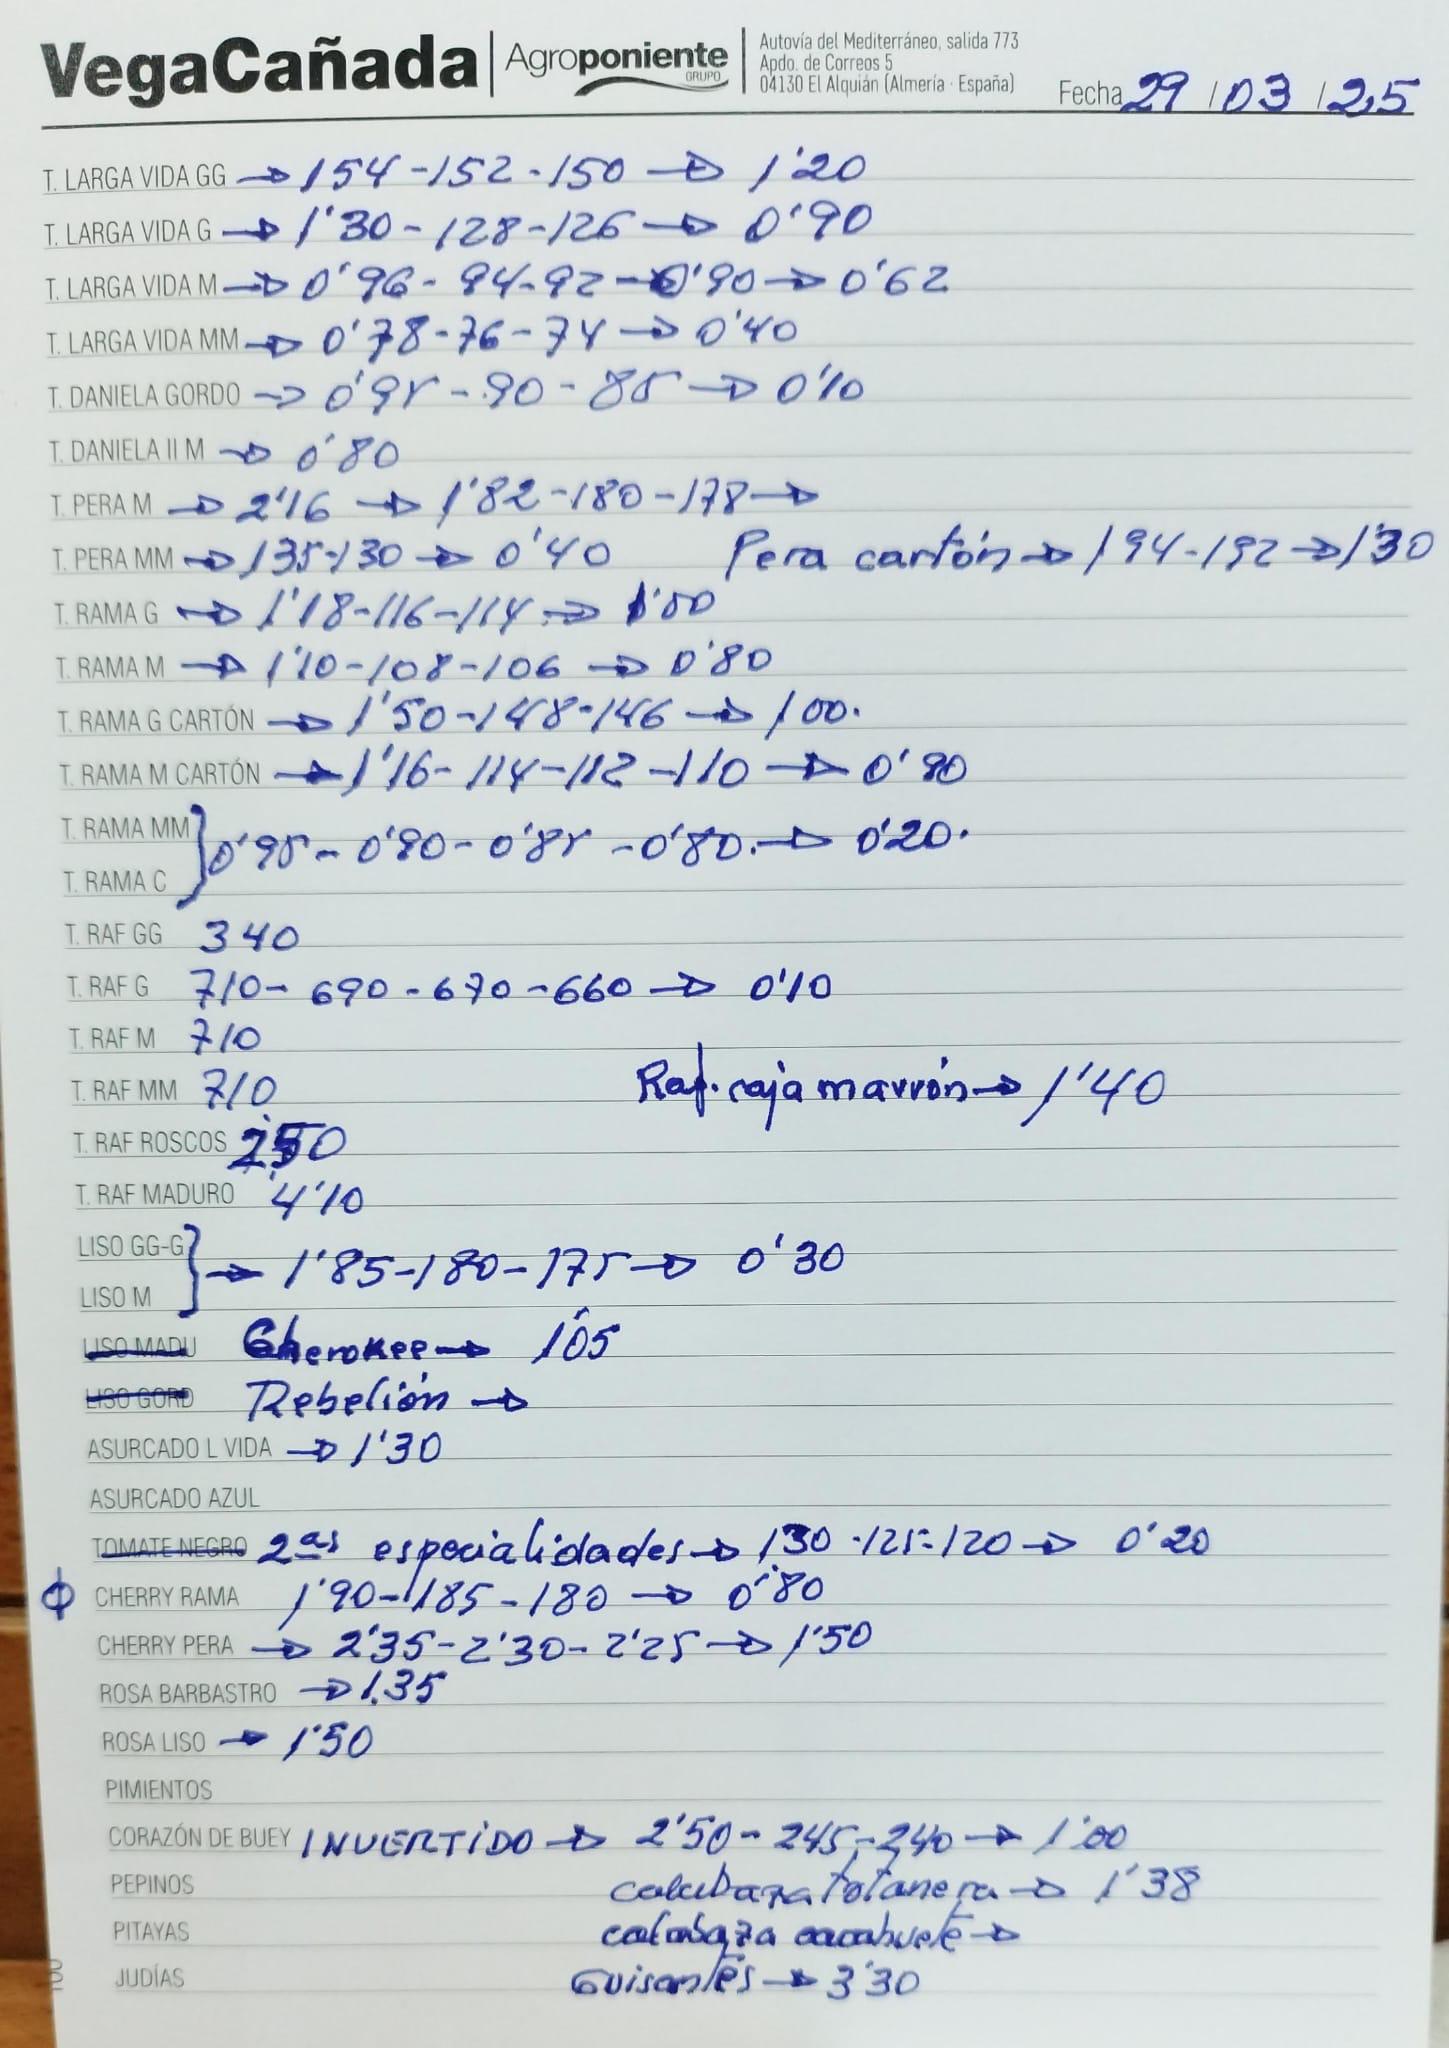 VegaCañada Agroponiente GRUPO
Autovía del Mediterráneo, salida 773
Apdo. de Correos 5
04130 El Alquián (Almería · España)
Fecha 29/03/25
T. LARGA VIDA GG → 154-152-150 → 1'20
T. LARGA VIDA G → 1'30-128-126 → 0'90
T. LARGA VIDA M → 0'96-94-92-0'90 → 0'62
T. LARGA VIDA MM → 0'78-76-74 → 0'40
T. DANIELA GORDO → 0'95-90-85 → 0'10
T. DANIELA II M → 0'80
T. PERA M → 2'16 → 1'82-180-178 →
T. PERA MM → 135-130 → 0'40 Pera cartón → 194-192 → 1'30
T. RAMA G → 1'18-116-114 → 1'00
T. RAMA M → 1'10-108-106 → 0'80
T. RAMA G CARTÓN → 1'50-148-146 → 100.
T. RAMA M CARTÓN → 1'16-114-112-110 → 0'90
T. RAMA MM
T. RAMA C } 0'95-0'90-0'85-0'80. → 0'20.
T. RAF GG 340
T. RAF G 710-690-670-660 → 0'10
T. RAF M 710
T. RAF MM 710 Raf. caja marrón → 1'40
T. RAF ROSCOS 250
T. RAF MADURO 4'10
LISO GG-G
LISO M } → 1'85-180-175 → 0'30
LISO MADU Cherokee → 1'05
LISO GORD Rebelión →
ASURCADO L VIDA → 1'30
ASURCADO AZUL
TOMATE NEGRO 2as especialidades → 130-125-120 → 0'20
CHERRY RAMA 1'90-185-180 → 0'80
CHERRY PERA → 2'35-2'30-2'25 → 1'50
ROSA BARBASTRO → 1.35
ROSA LISO → 1'50
PIMIENTOS
CORAZÓN DE BUEY INVERTIDO → 2'50-245-240 → 1'00
PEPINOS calabaza totanera → 1'38
PITAYAS calabaza cacahuete →
JUDÍAS Guisantes → 3'30